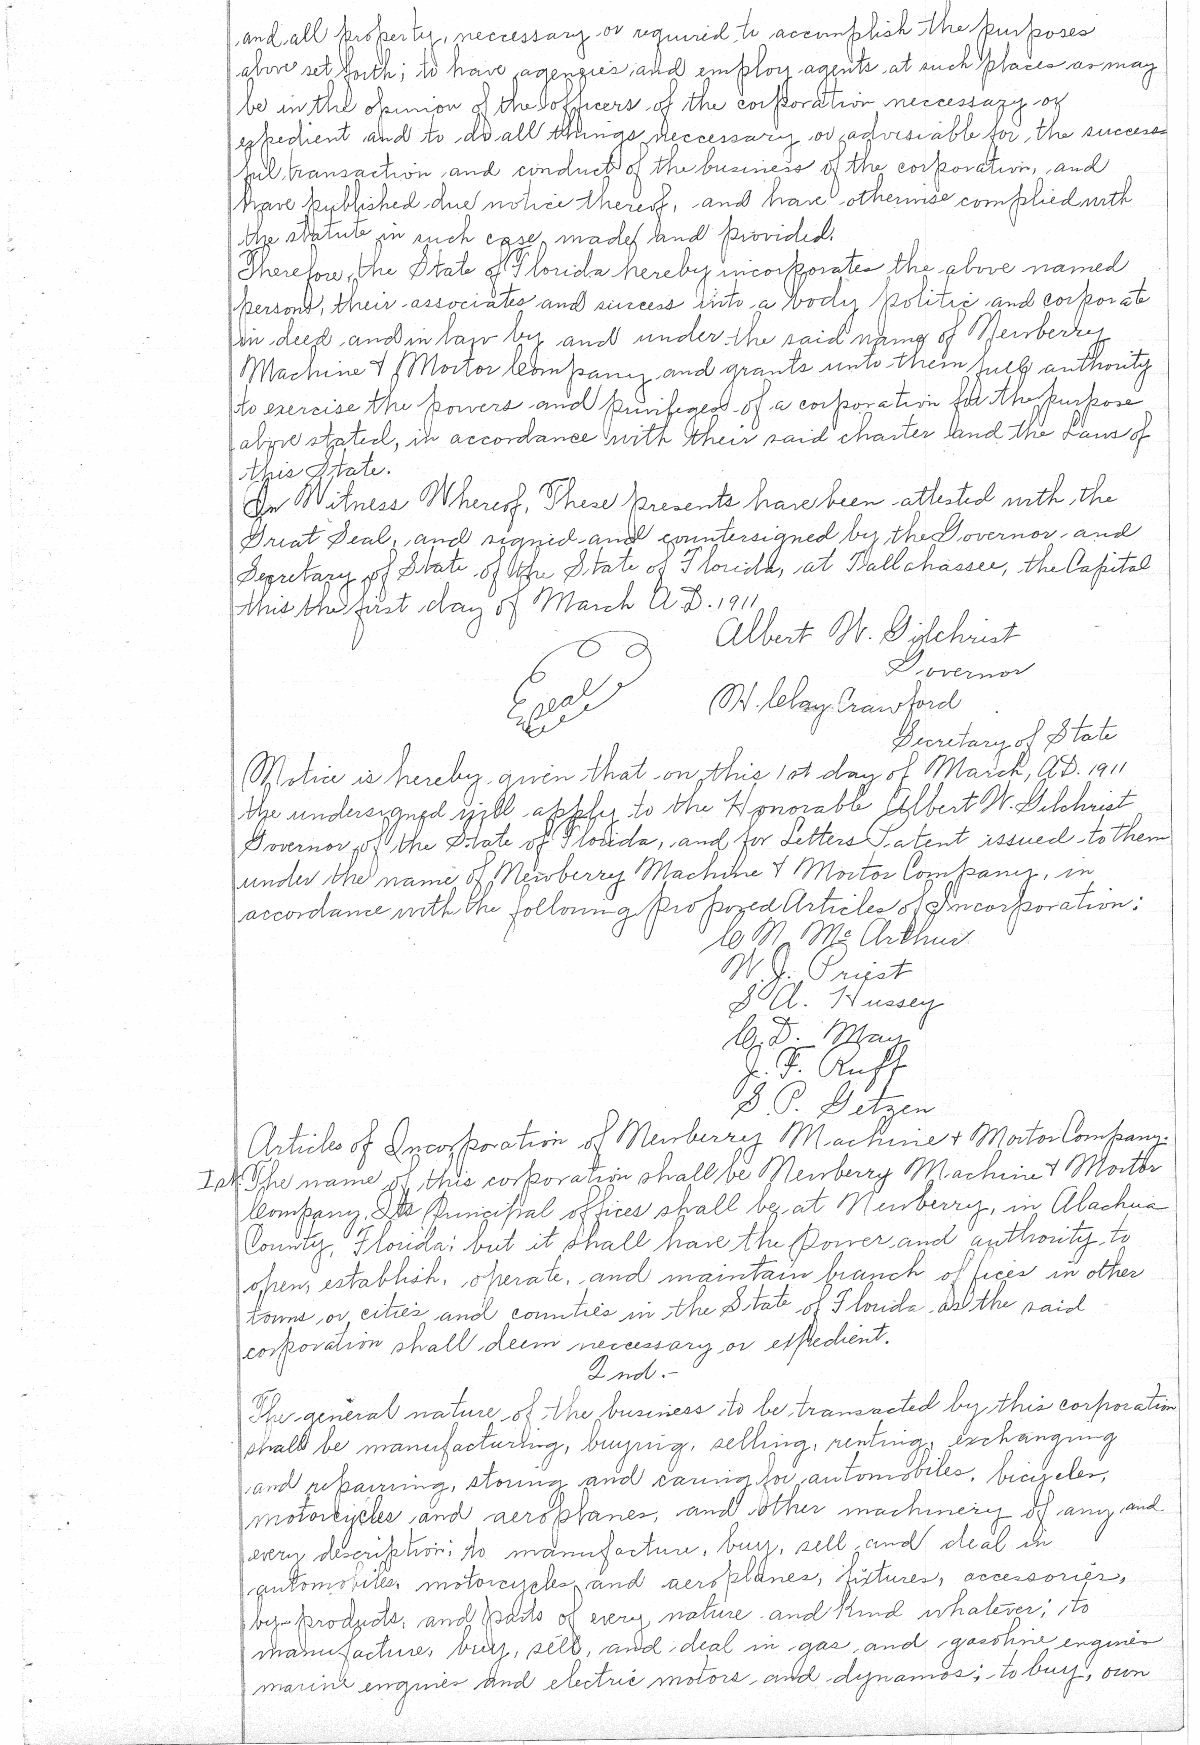 and all property, neccessary or required to accomplish the purposes
above set forth; to have agencies and employ agents at such places as may
be in the opinion of the officers of the corporation neccessary or
expedient and to do all things neccessary or advisiable for the success-
ful transaction and conduct of the business of the corporation, and
have published due notice thereof, and have otherwise complied with
the statute in such case made and provided.
Therefore, the State of Florida hereby incorporates the above named
persons, their associates and success into a body politic and corporate
in deed and in law by and under the said name of Newberry
Machine & Mortor Company and grants unto them full authority
to exercise the powers and privileges of a corporation for the purpose
above stated, in accordance with their said charter and the Laws of
this State.
In Witness Whereof, These presents have been attested with the
Great Seal, and signed and countersigned by the Governor and
Secretary of State of the State of Florida, at Tallahassee, the Capital
this the first day of March A.D. 1911
Albert W. Gilchrist
Governor
Seal
H. Clay Crawford
Secretary of State
Notice is hereby given that on this 1st day of March, A.D. 1911
the undersigned will apply to the Honorable Albert W. Gilchrist
Governor of the State of Florida, and for Letters Patent issued to them
under the name of Newberry Machine & Mortor Company, in
accordance with the following proposed Articles of Incorporation:
C N McArthur
W. J. Priest
S A. Hussey
C. D. May
J. F. Ruff
S. P. Getzen
Articles of Incorporation of Newberry Machine & Mortor Company.
1st The name of this corporation shall be Newberry Machine & Mortor
Company. Its Principal offices shall be at Newberry, in Alachua
County, Florida; but it shall have the power and authority to
open, establish, operate, and maintain branch offices in other
towns or cities and counties in the State of Florida as the said
corporation shall deem neccessary or expedient.
2nd.-
The general nature of the business to be transacted by this corporation
shall be manufacturing, buying, selling, renting, exchanging
and repairing, storing and caring for automobiles, bicycles,
motorcycles and aeroplanes, and other machinery of any and
every description; to manufacture, buy, sell and deal in
automobiles, motorcycles and aeroplanes, fixtures, accessories,
by-products, and parts of every nature and kind whatever; to
manufacture, buy, sell, and deal in gas and gasoline engines
marine engines and electric motors and dynamos; to buy, own